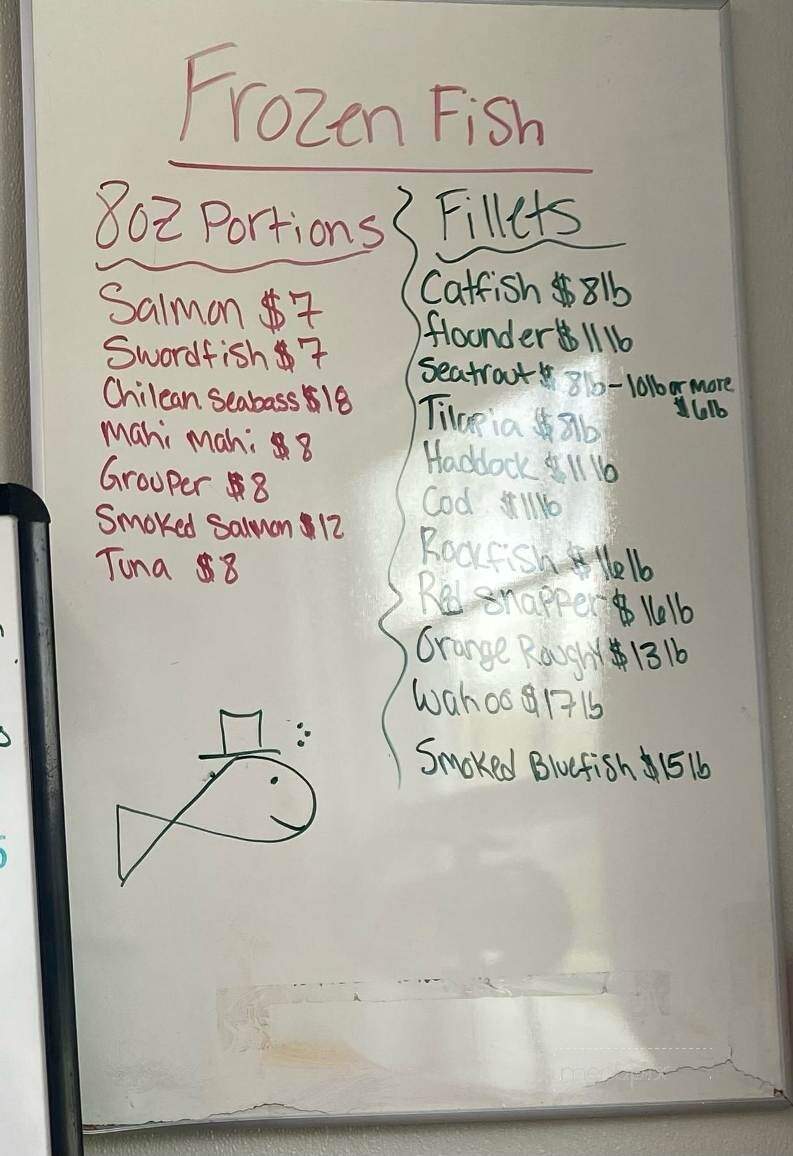 Frozen Fish
8oz Portions
Salmon $7
Swordfish $7
Chilean Seabass $18
Mahi Mahi $8
Grouper $8
Smoked Salmon $12
Tuna $8
Fillets
Catfish $8lb
flounder $11lb
Seatrout $8lb-10lb or more
$6lb
Tilapia $8lb
Haddock $11lb
Cod $11lb
Rockfish $16lb
Red Snapper $16lb
Orange Roughy $13lb
Wahoo $17lb
Smoked Bluefish $15lb